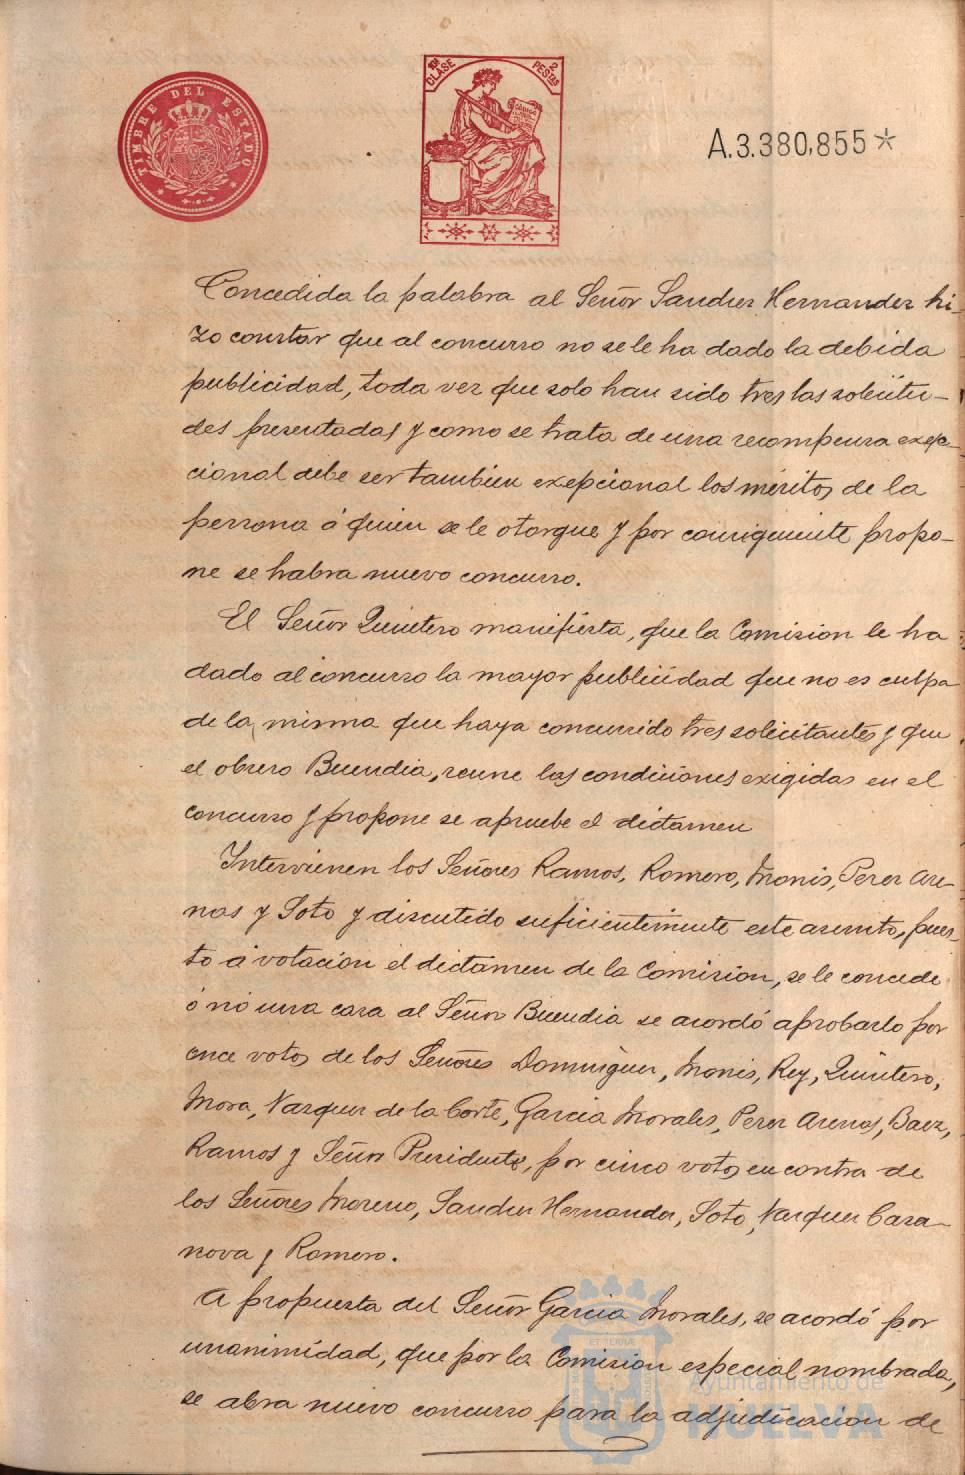 TIMBRE DEL ESTADO
10ª CLASE 2 PESTAS
A.3.380,855*
Concedida la palabra al Señor Sanchez Hernandez hi-
zo constar que al concurso no se le ha dado la debida
publicidad, toda vez que solo han sido tres las solicitu-
des presentadas y como se trata de una recompensa exep-
cional debe ser tambien exepcional los méritos de la
persona á quien se le otorgue y por consiguiente propo-
ne se habra nuevo concurso.
El Señor Quintero manifiesta, que la Comision le ha
dado al concurso la mayor publicidad que no es culpa
de la misma que haya concurrido tres solicitantes y que
el obrero Buendia, reune las condiciones exigidas en el
concurso y propone se apruebe el dictamen
Intervienen los Señores Ramos, Romero, Monis, Perez Are-
nas y Soto y discutido suficientemente este asunto, pues-
to á votación el dictámen de la Comision, se le concede
ó nó una casa al Señor Buendia se acordó aprobarlo por
once votos de los Señores Dominguez, Monis, Rey, Quintero,
Mora, Vazquez de la Corte, Garcia Morales, Perez Arenas, Baez,
Ramos y Señor Presidente, por cinco votos en contra de
los Señores Moreno, Sanchez Hernandez, Soto, Vazquez Casa-
nova y Romero.
A propuesta del Señor Garcia Morales, se acordó por
unanimidad, que por la Comision especial nombrada,
se abra nuevo concurso para la adjudicacion de
Ayuntamiento de
HUELVA